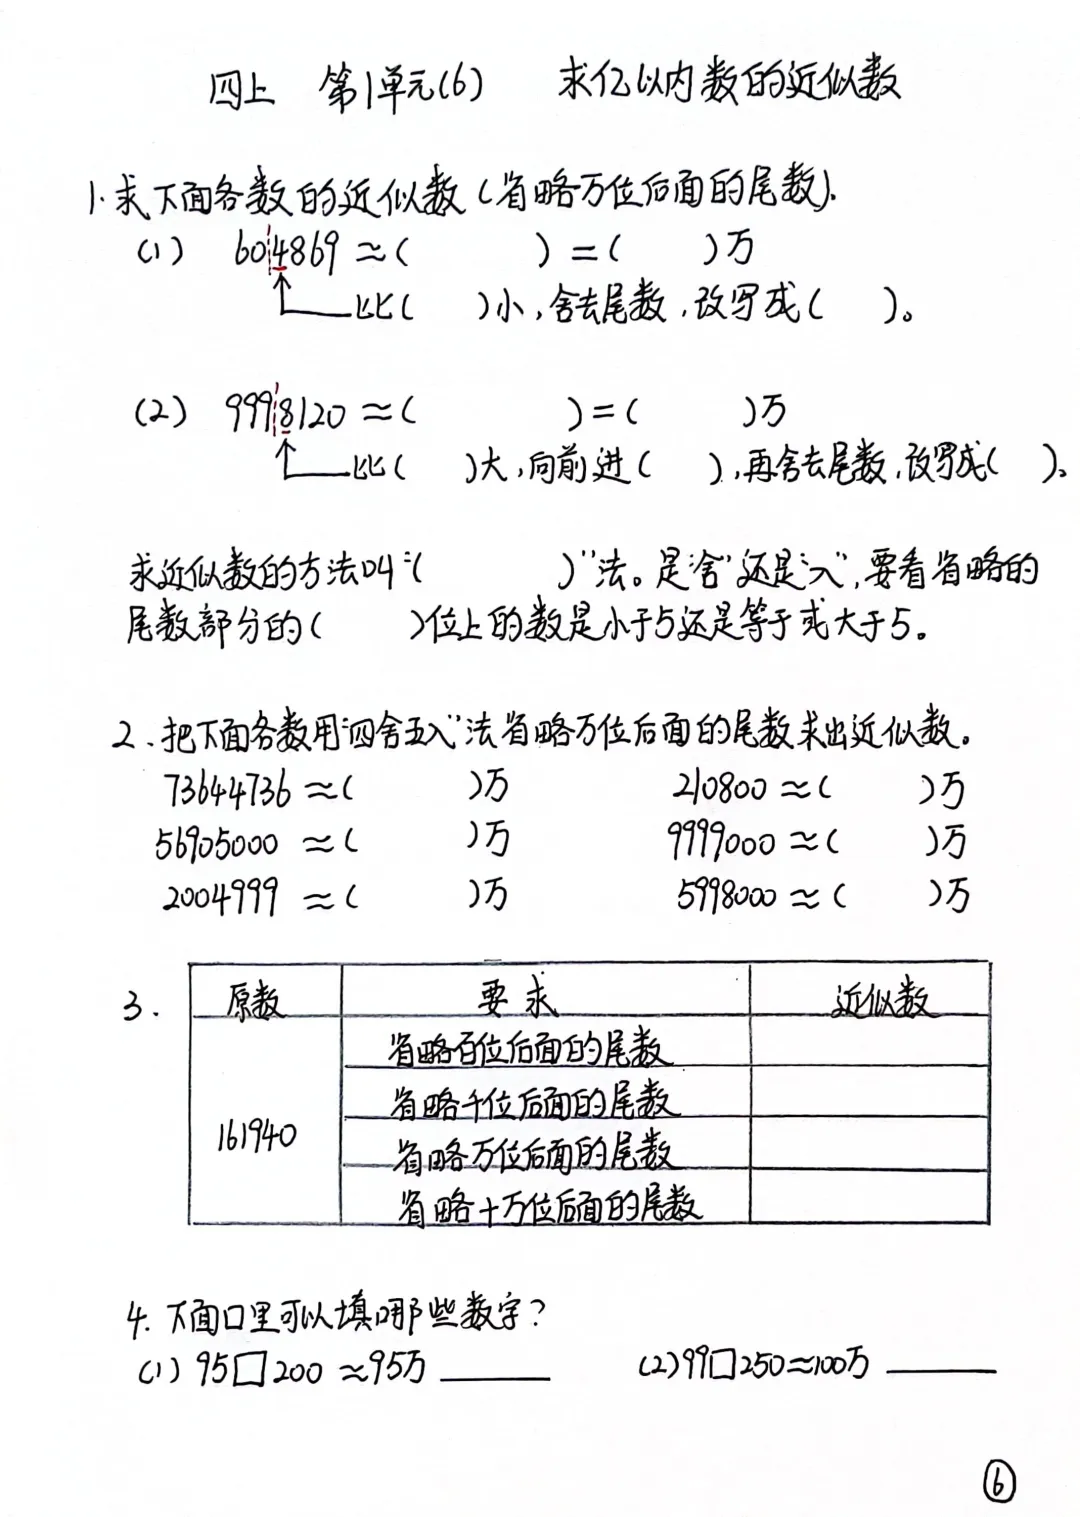 四上 第1单元(6) 求亿以内数的近似数
1.求下面各数的近似数(省略万位后面的尾数).
(1) 604869≈( )=( )万
比( )小,舍去尾数,改写成( )。
(2) 9998120≈( )=( )万
比( )大,向前进( ),再舍去尾数,改写成( )。
求近似数的方法叫“( )”法。是“舍”还是“入”,要看省略的
尾数部分的( )位上的数是小于5还是等于或大于5。
2、把下面各数用“四舍五入”法省略万位后面的尾数求出近似数。
73644736≈( )万 210800≈( )万
56905000≈( )万 9999000≈( )万
2004999≈( )万 5998000≈( )万
3. 原数 要求 近似数
省略百位后面的尾数
省略千位后面的尾数
161940
省略万位后面的尾数
省略十万位后面的尾数
4.下面口里可以填哪些数字?
(1)95□200≈95万 ____ (2)99□250≈100万 ____
⑥